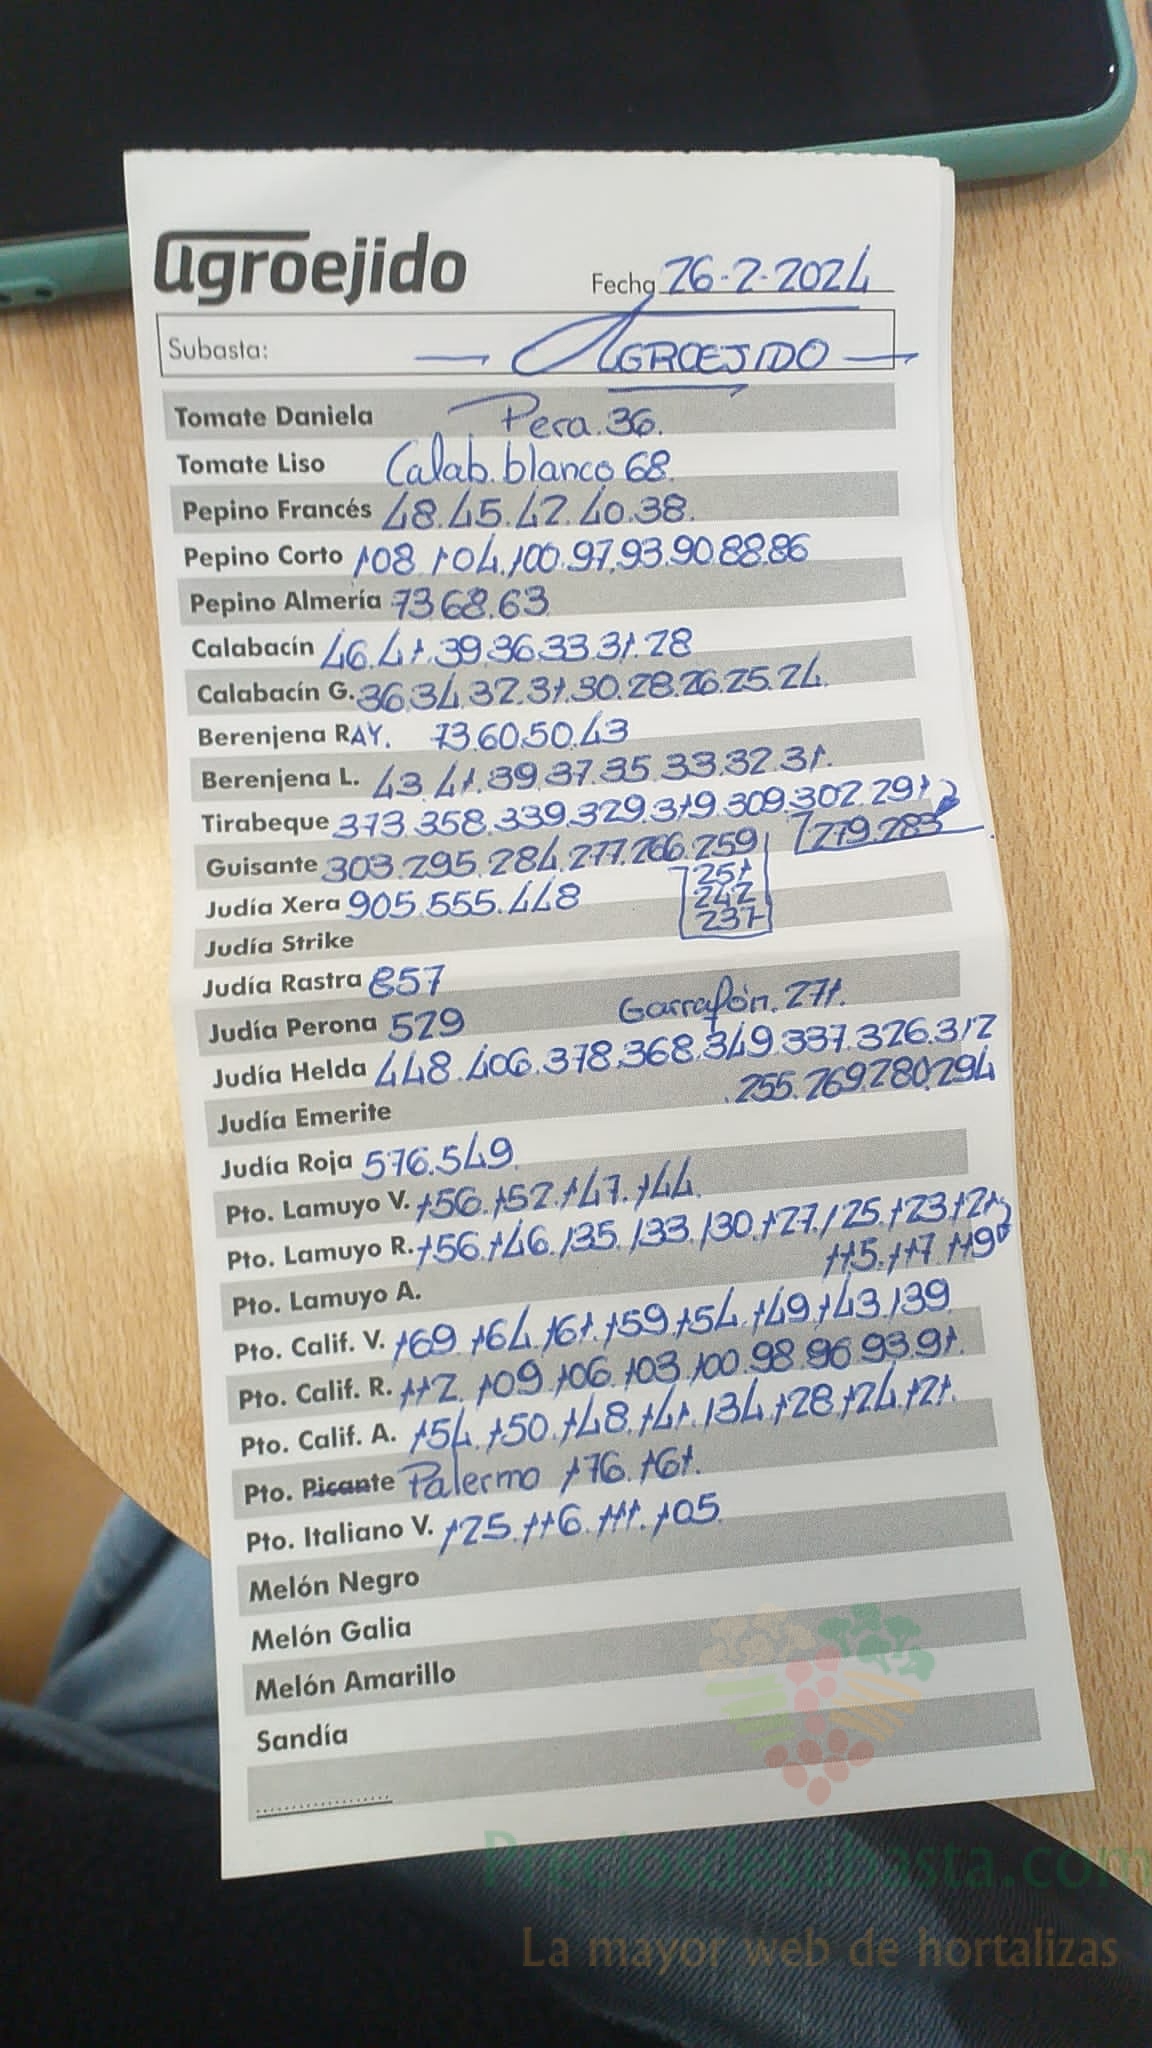 agroejido
Fecha 26-2-2024
Subasta: AGROEJIDO
Tomate Daniela Pera.36.
Tomate Liso Calab.blanco 68.
Pepino Francés 48.45.42.40.38.
Pepino Corto 108.104.100.97.93.90.88.86
Pepino Almería 73.68.63
Calabacín 46.41.39.36.33.31.28
Calabacín G. 36.34.32.31.30.28.26.25.24.
Berenjena RAY. 73.60.50.43
Berenjena L. 43.41.39.37.35.33.32.31.
Tirabeque 373.358.339.329.319.309.302.291
279.283
Guisante 303.295.284.277.266.259
251
242
237
Judía Xera 905.555.448
Judía Strike
Judía Rastra 857
Judía Perona 529 Garrafón.271.
Judía Helda 448.406.378.368.349.337.326.312
.255.269.280.294
Judía Emerite
Judía Roja 576.549
Pto. Lamuyo V. 156.152.147.144.
Pto. Lamuyo R. 156.146.135.133.130.127.125.123.121
115.117.119
Pto. Lamuyo A.
Pto. Calif. V. 169.164.161.159.154.149.143.139
Pto. Calif. R. 112.109.106.103.100.98.96.93.91.
Pto. Calif. A. 154.150.148.141.134.128.124.121.
Pto. Picante Palermo 176.161.
Pto. Italiano V. 125.116.111.105
Melón Negro
Melón Galia
Melón Amarillo
Sandía
Preciosdesubasta.com
La mayor web de hortalizas